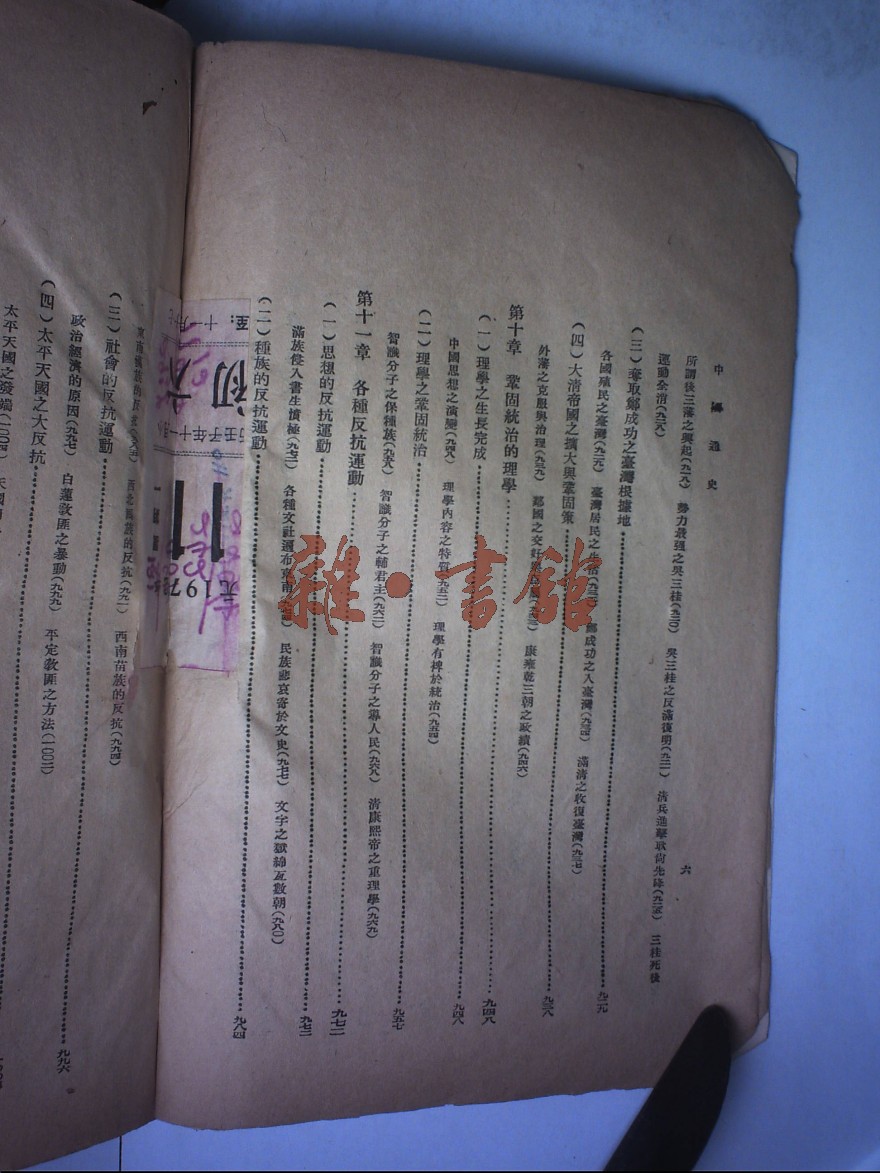 中國通史
六
所謂後三藩之興起(九一八) 勢力最强之吳三桂(九二〇) 吳三桂之反滿復明(九二一) 清兵進擊耿尚先降(九二五) 三桂死後
運動全消(九二八)
(三)奪取鄭成功之臺灣根據地 九二九
各國殖民之臺灣(九二九) 臺灣居民之生活 鄭成功之入臺灣(九三四) 滿清之收復臺灣(九三七)
(四)大清帝國之擴大與鞏固策 九三八
外藩之克服與治理(九三九) 鄰國之交好 康雍乾三朝之政績(九四六)
第十章 鞏固統治的理學 九四八
(一)理學之生長完成 九四八
中國思想之演變(九四八) 理學內容之特質(九五二) 理學有裨於統治(九五四)
(二)理學之鞏固統治 九五七
智識分子之保種族(九五八) 智識分子之輔君主(九六二) 智識分子之導人民(九六八) 清康熙帝之重理學(九六九)
第十一章 各種反抗運動 九七二
(一)思想的反抗運動 九七二
滿族侵入書生憤極(九七二) 各種文社遍布東南 民族悲哀寄於文史(九七七) 文字之獄綿亙數朝(九八〇)
(二)種族的反抗運動 九八四
西北回族的反抗(九九一) 西南苗族的反抗(九九四)
(三)社會的反抗運動 九九六
政治經濟的原因(九九七) 白蓮教匪之暴動(九九九) 平定教匪之方法(一〇〇二)
(四)太平天國之大反抗
太平天國之發端(一〇〇四)
初六
11
元197
雜·書館